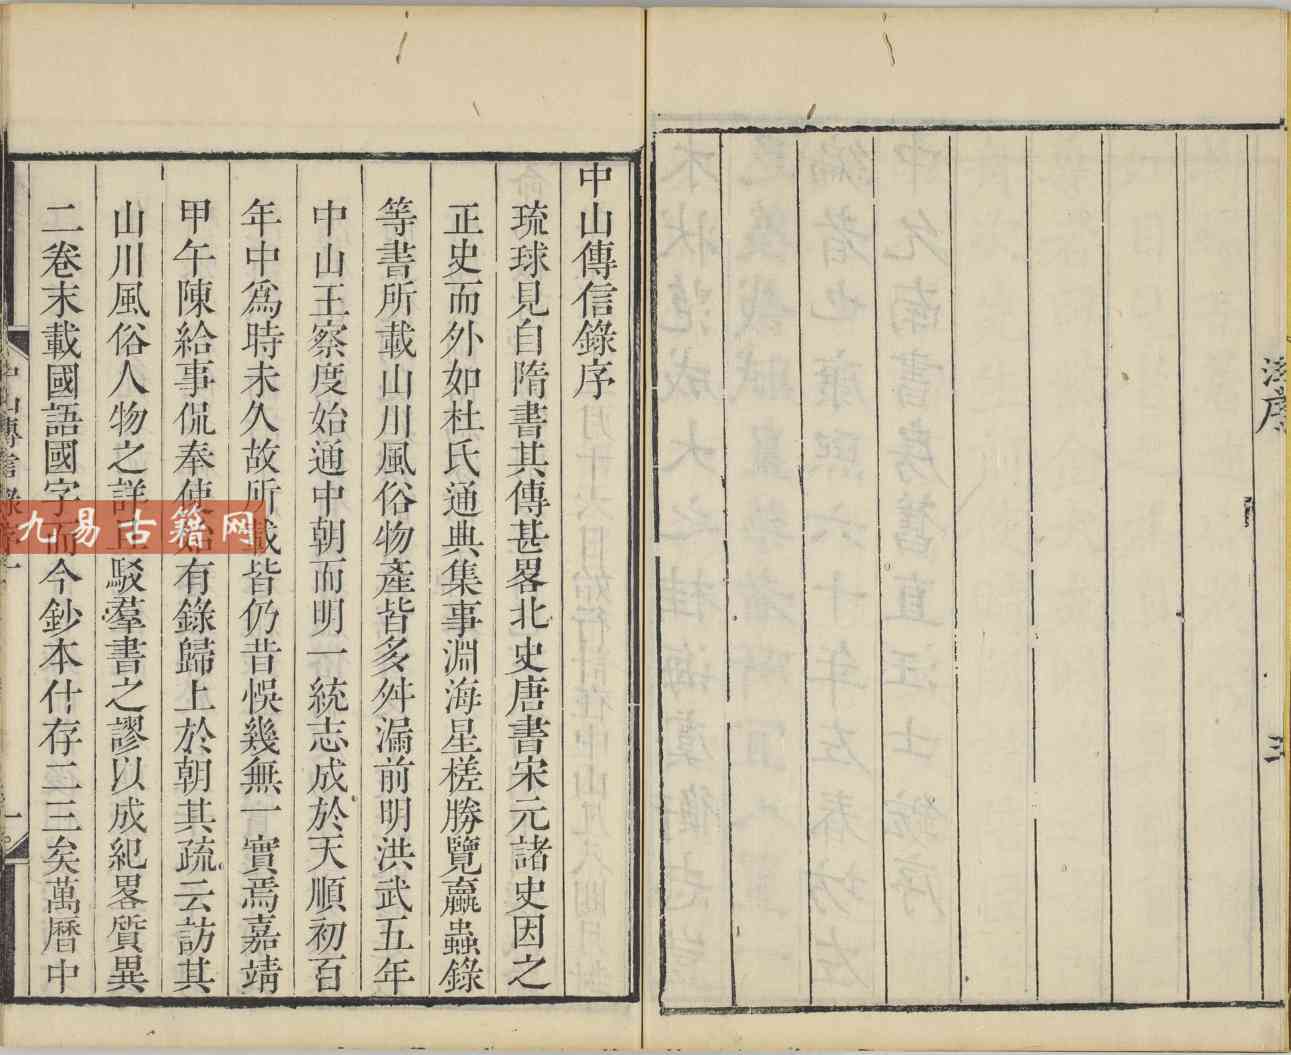 汪序
三
中山傳信錄序
琉球見自隋書其傳甚畧北史唐書宋元諸史因之
正史而外如杜氏通典集事淵海星槎勝覽蠃蟲錄
等書所載山川風俗物產皆多舛漏前明洪武五年
中山王察度始通中朝而明一統志成於天順初百
年中爲時未久故所載皆仍昔悞幾無一實焉嘉靖
甲午陳給事侃奉使始有錄歸上於朝其疏云訪其
山川風俗人物之詳且駁羣書之謬以成紀畧質異
二卷末載國語國字而今鈔本什存二三矣萬曆中
中山傳信錄序
一
九易古籍网